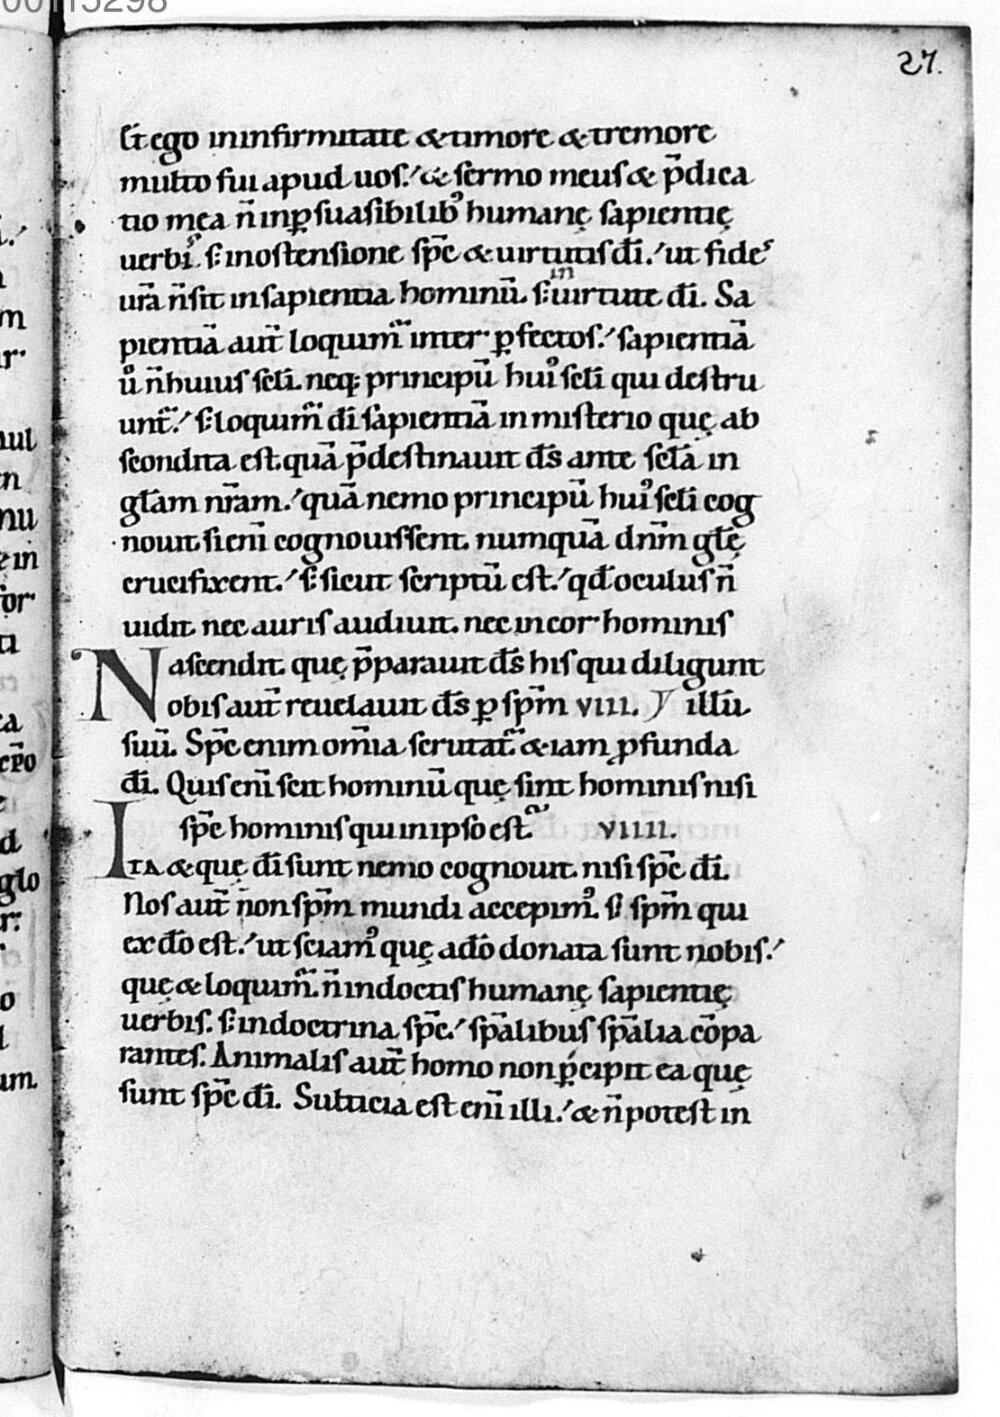 27.
Et ego in infirmitate & timore & tremore
multo fui apud uos. & sermo meus & p̄dica
tio mea n̄ in ꝑsuasibilib; humanę sapientię
uerbis s; in ostensione sp̄c & uirtutis d̄i. ut fides
ur̄a n̄ sit in sapientia hominū. s; in uirtute d̄i. Sa
pientiā aut̄ loquim̄ inter ꝑfectos. sapientiā
ū n̄ huius scl̄i. neq; principū hui⁹ scl̄i qui destru
unt̄. s; loquim̄ d̄i sapientiā in misterio quę ab
scondita est. quā p̄destinauit d̄s ante scl̄a in
gl̄am nr̄am. quā nemo principū hui⁹ scl̄i cog
nouit si eni̅ cognouissent. numquā dn̄m gl̄ę
crucifixent. s; sicut scriptū est. qđ oculus n̄
uidit. nec auris audiuit. nec in cor hominis
ascendit quę p̄parauit d̄s his qui diligunt
Nobis aut̄ reuelauit d̄s ꝑ sp̄m VIII. illū
suū. Sp̄c enim om̄ia scrutat̄ & iam ꝓfunda
d̄i. Quis eni̅ scit hominū quę sint hominis nisi
sp̄c hominis qui in ipso est VIIII.
Ita & quę d̄i sunt nemo cognouit. nisi sp̄c d̄i.
Nos aut̄ non sp̄m mundi accepim⁹. s; sp̄m qui
ex d̄o est. ut sciam⁹ quę a d̄o donata sunt nobis.
quę & loquim̄. n̄ in doctis humanę sapientię
uerbis. s; in doctrina sp̄c. sp̄alibus sp̄alia cōpa
rantes. Animalis aut̄ homo non ꝑcipit ea quę
sunt sp̄c d̄i. Stulticia est eni̅ illi. & n̄ potest in